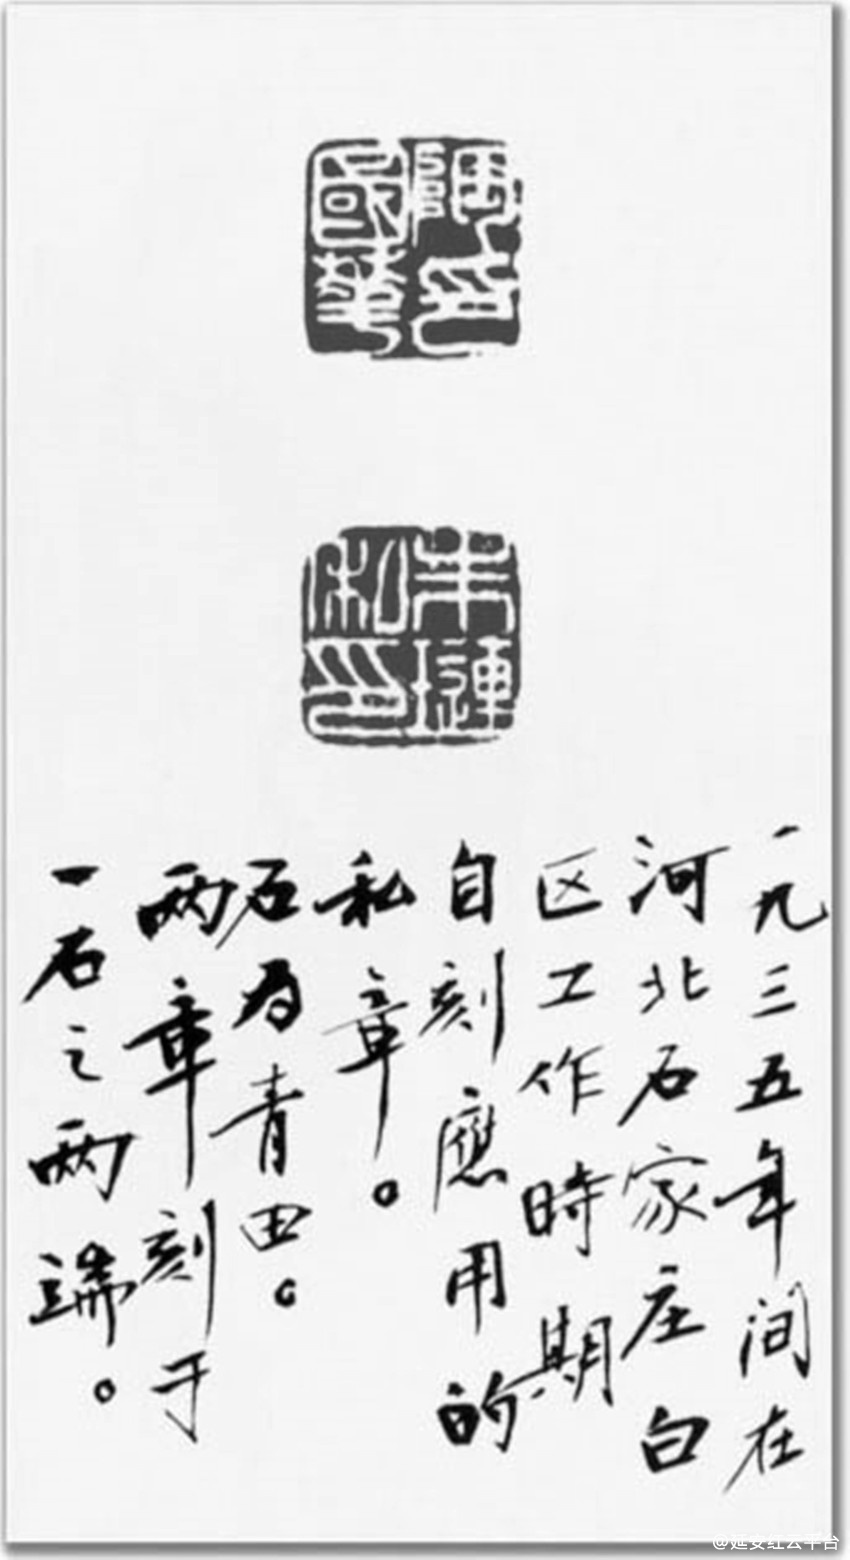 陶國華印
朱璉私印
一九三五年间在
河北石家庄白
区工作時期
自刻應用的
私章。
石为青田。
两章刻于
一石之两端。
@延安红云平台